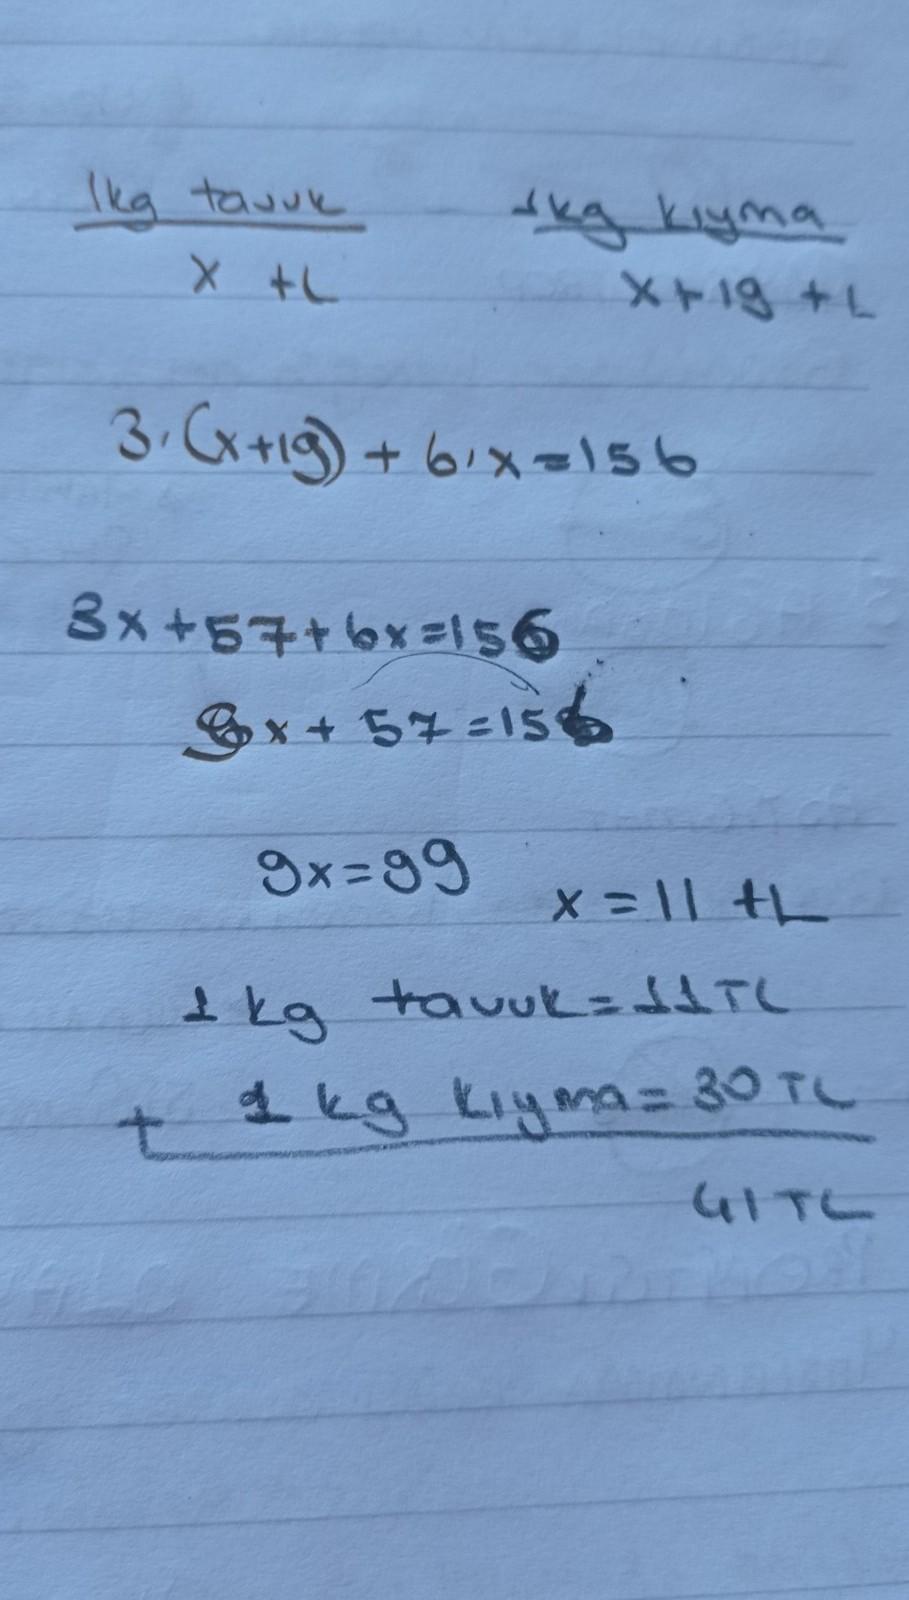 1kg tavuk 1kg kıyma
x +L x+19 +L
3.(x+19) + 6.x=156
3x+57+6x=156
9x + 57 =156
9x=99 x = 11 +L
1 kg tavuk=11TL
+ 1 kg kıyma= 30 TL
41 TL